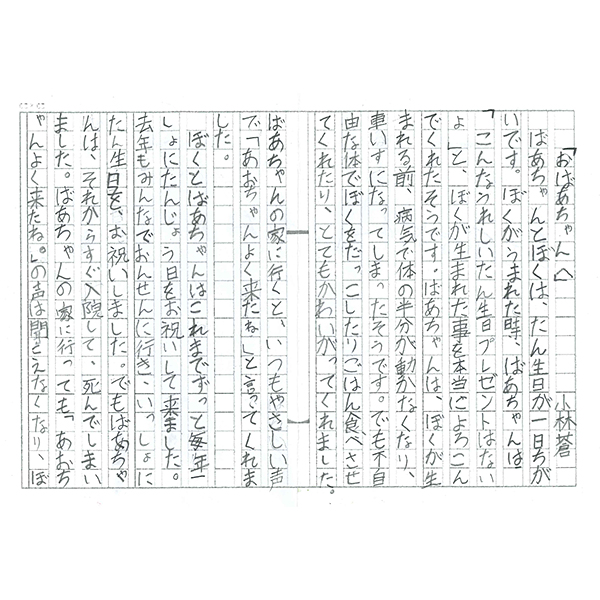 「おばあちゃんへ」
小林蒼
ばあちゃんとぼくは、たん生日が一日ちが
いです。ぼくがうまれた時、ばあちゃんは
「こんなうれしいたん生日プレゼントはない
よ」と、ぼくが生まれた事を本当によろこん
でくれたそうです。ばあちゃんは、ぼくが生
まれる前、病気で体の半分が動かなくなり、
車いすになってしまったそうです。でも不自
由な体でぼくをだっこしたりごはん食べさせ
てくれたり、とてもかわいがってくれました。
ばあちゃんの家に行くと、いつもやさしい声
で「あおちゃんよく来たね」と言ってくれま
した。
ぼくとばあちゃんはこれまでずっと毎年一
しょにたんじょう日をお祝いして来ました。
去年もみんなでおんせんに行き、いっしょに
たん生日を、お祝いしました。でもばあちゃ
んは、それからすぐ入院して、死んでしまい
ました。ばあちゃんの家に行っても「あおち
ゃんよく来たね。」の声は聞こえなくなり、ぼ